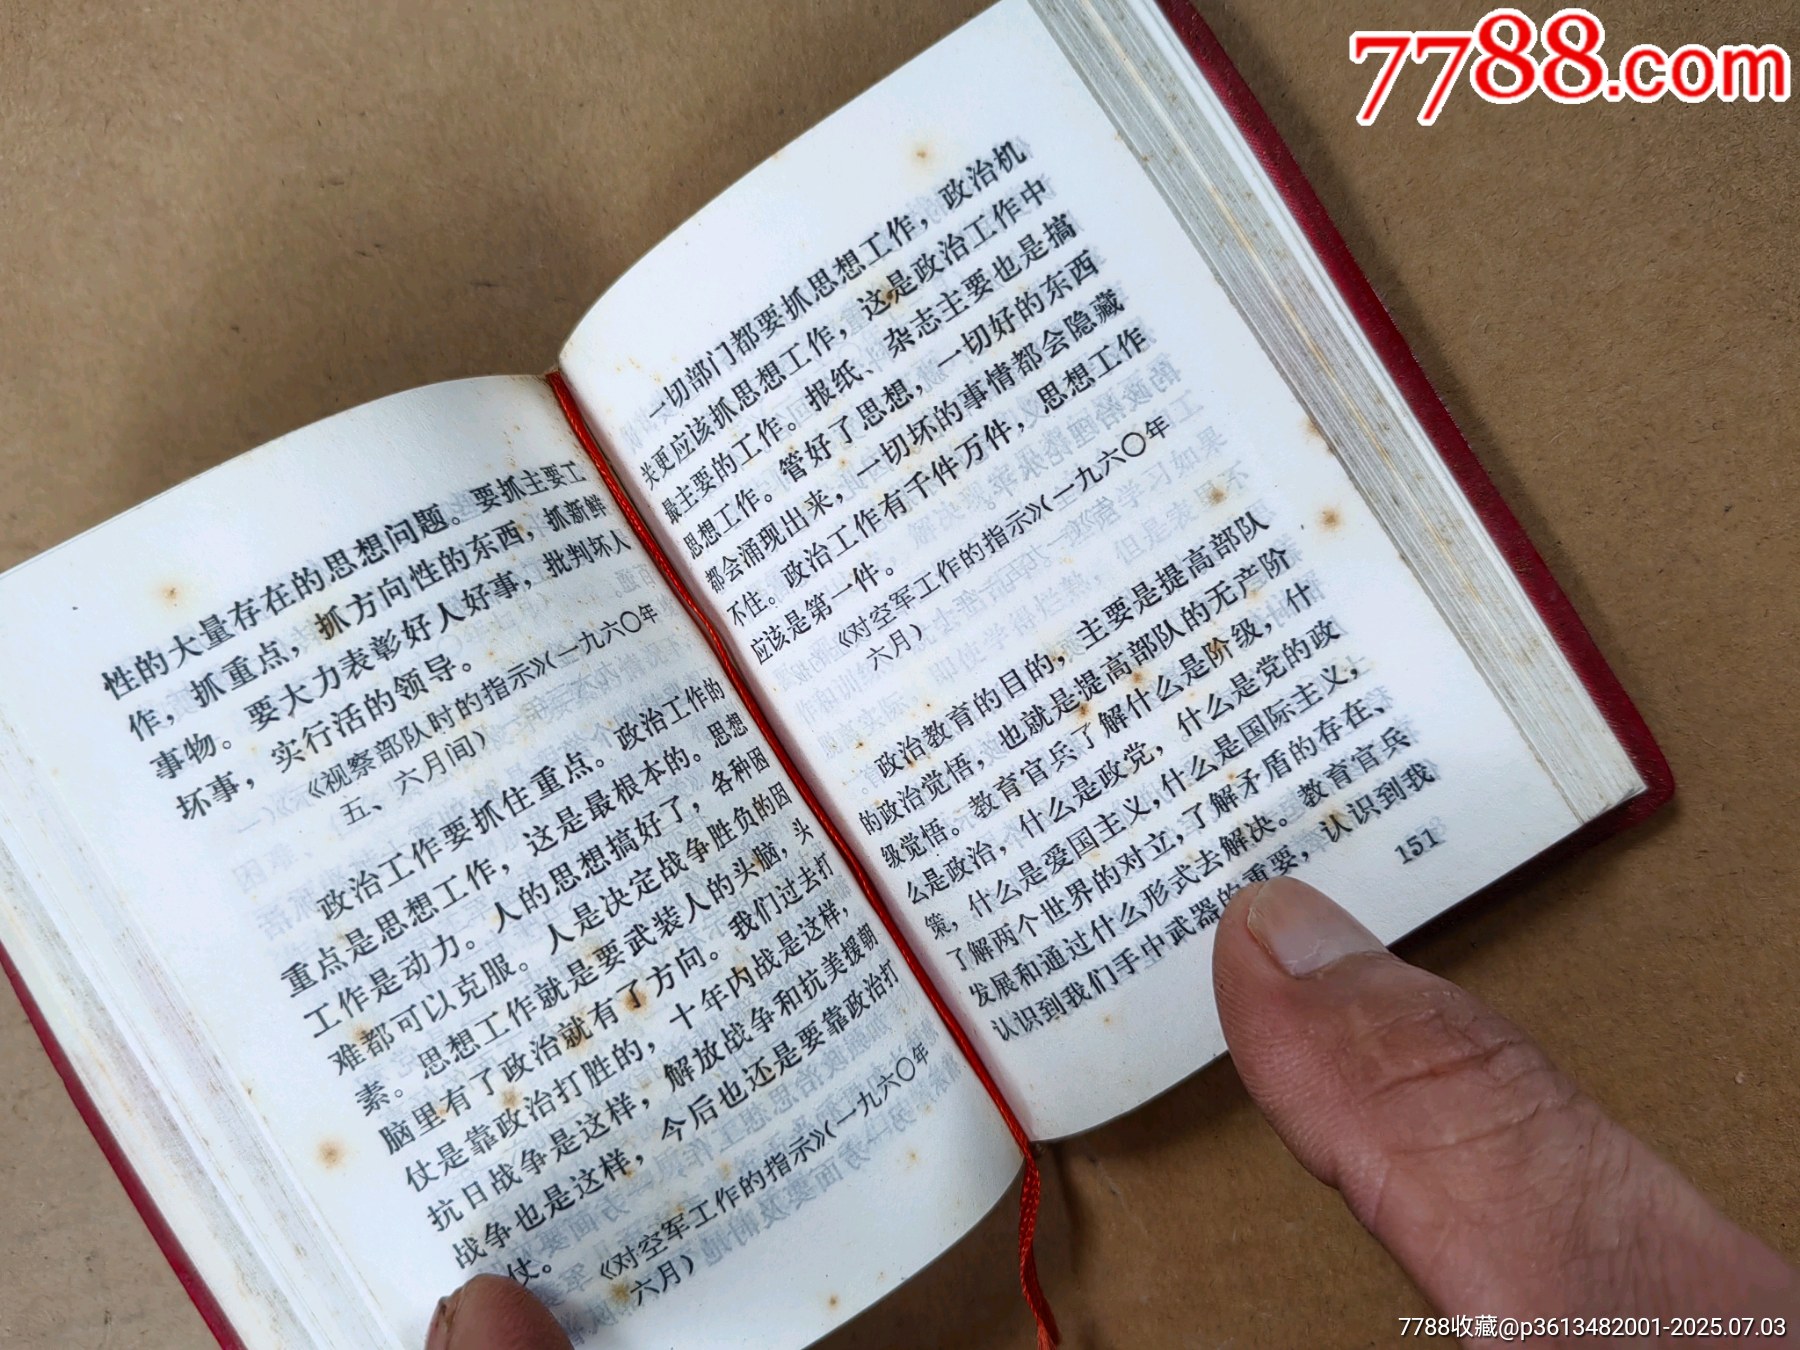 7788.com
性的大量存在的思想问题。要抓主要工
作，抓重点，抓方向性的东西，抓新鲜
事物。要大力表彰好人好事，批判坏人
坏事，实行活的领导。
《视察部队时的指示》（一九六〇年
五、六月间）
政治工作要抓住重点。政治工作的
重点是思想工作，这是最根本的。思想
工作是动力。人的思想搞好了，各种困
难都可以克服。人是决定战争胜负的因
素。思想工作就是要武装人的头脑，头
脑里有了政治就有了方向。我们过去打
仗是靠政治打胜的，十年内战是这样，
抗日战争是这样，解放战争和抗美援朝
战争也是这样，今后也还是要靠政治打
仗。
《对空军工作的指示》（一九六〇年
六月）
一切部门都要抓思想工作，政治机
关更应该抓思想工作，这是政治工作中
最主要的工作。报纸、杂志主要也是搞
思想工作。管好了思想，一切好的东西
都会涌现出来，一切坏的事情都会隐藏
不住。政治工作有千件万件，思想工作
应该是第一件。
《对空军工作的指示》（一九六〇年
六月）
政治教育的目的，主要是提高部队
的政治觉悟，也就是提高部队的无产阶
级觉悟。教育官兵了解什么是阶级，什
么是政治，什么是政党，什么是党的政
策，什么是爱国主义，什么是国际主义，
了解两个世界的对立，了解矛盾的存在、
发展和通过什么形式去解决。教育官兵
认识到我们手中武器的重要，认识到我
151
7788收藏@p3613482001-2025.07.03